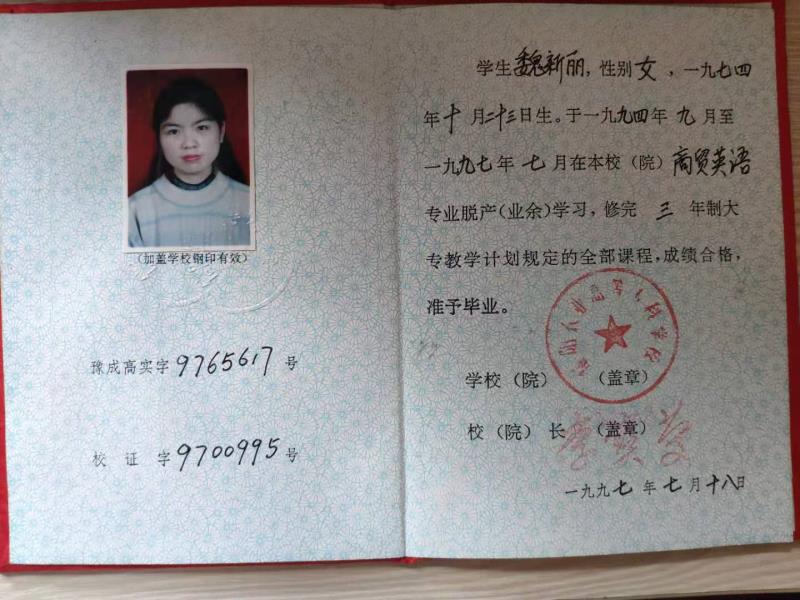 (加盖学校钢印有效)
豫成高实字9765617号
校 证 字9700995号
学生魏新丽，性别女，一九七四
年十月二十三日生。于一九九四年九月至
一九九七年七月在本校（院）商贸英语
专业脱产(业余)学习，修完 三 年制大
专教学计划规定的全部课程，成绩合格，
准予毕业。
学校（院） （盖章）
校（院）长 （盖章）
一九九七年七月十八日